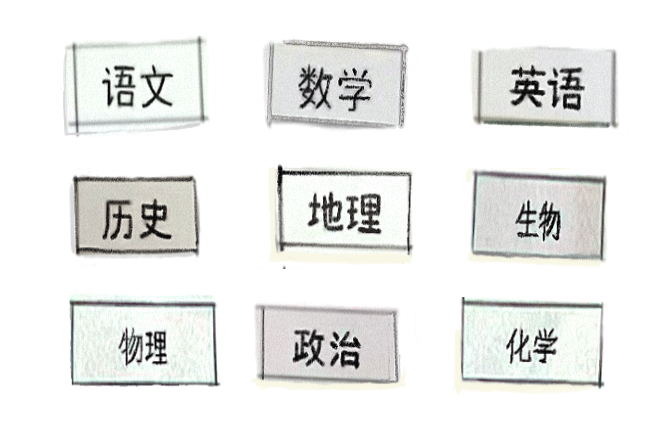 语文 数学 英语
历史 地理 生物
物理 政治 化学